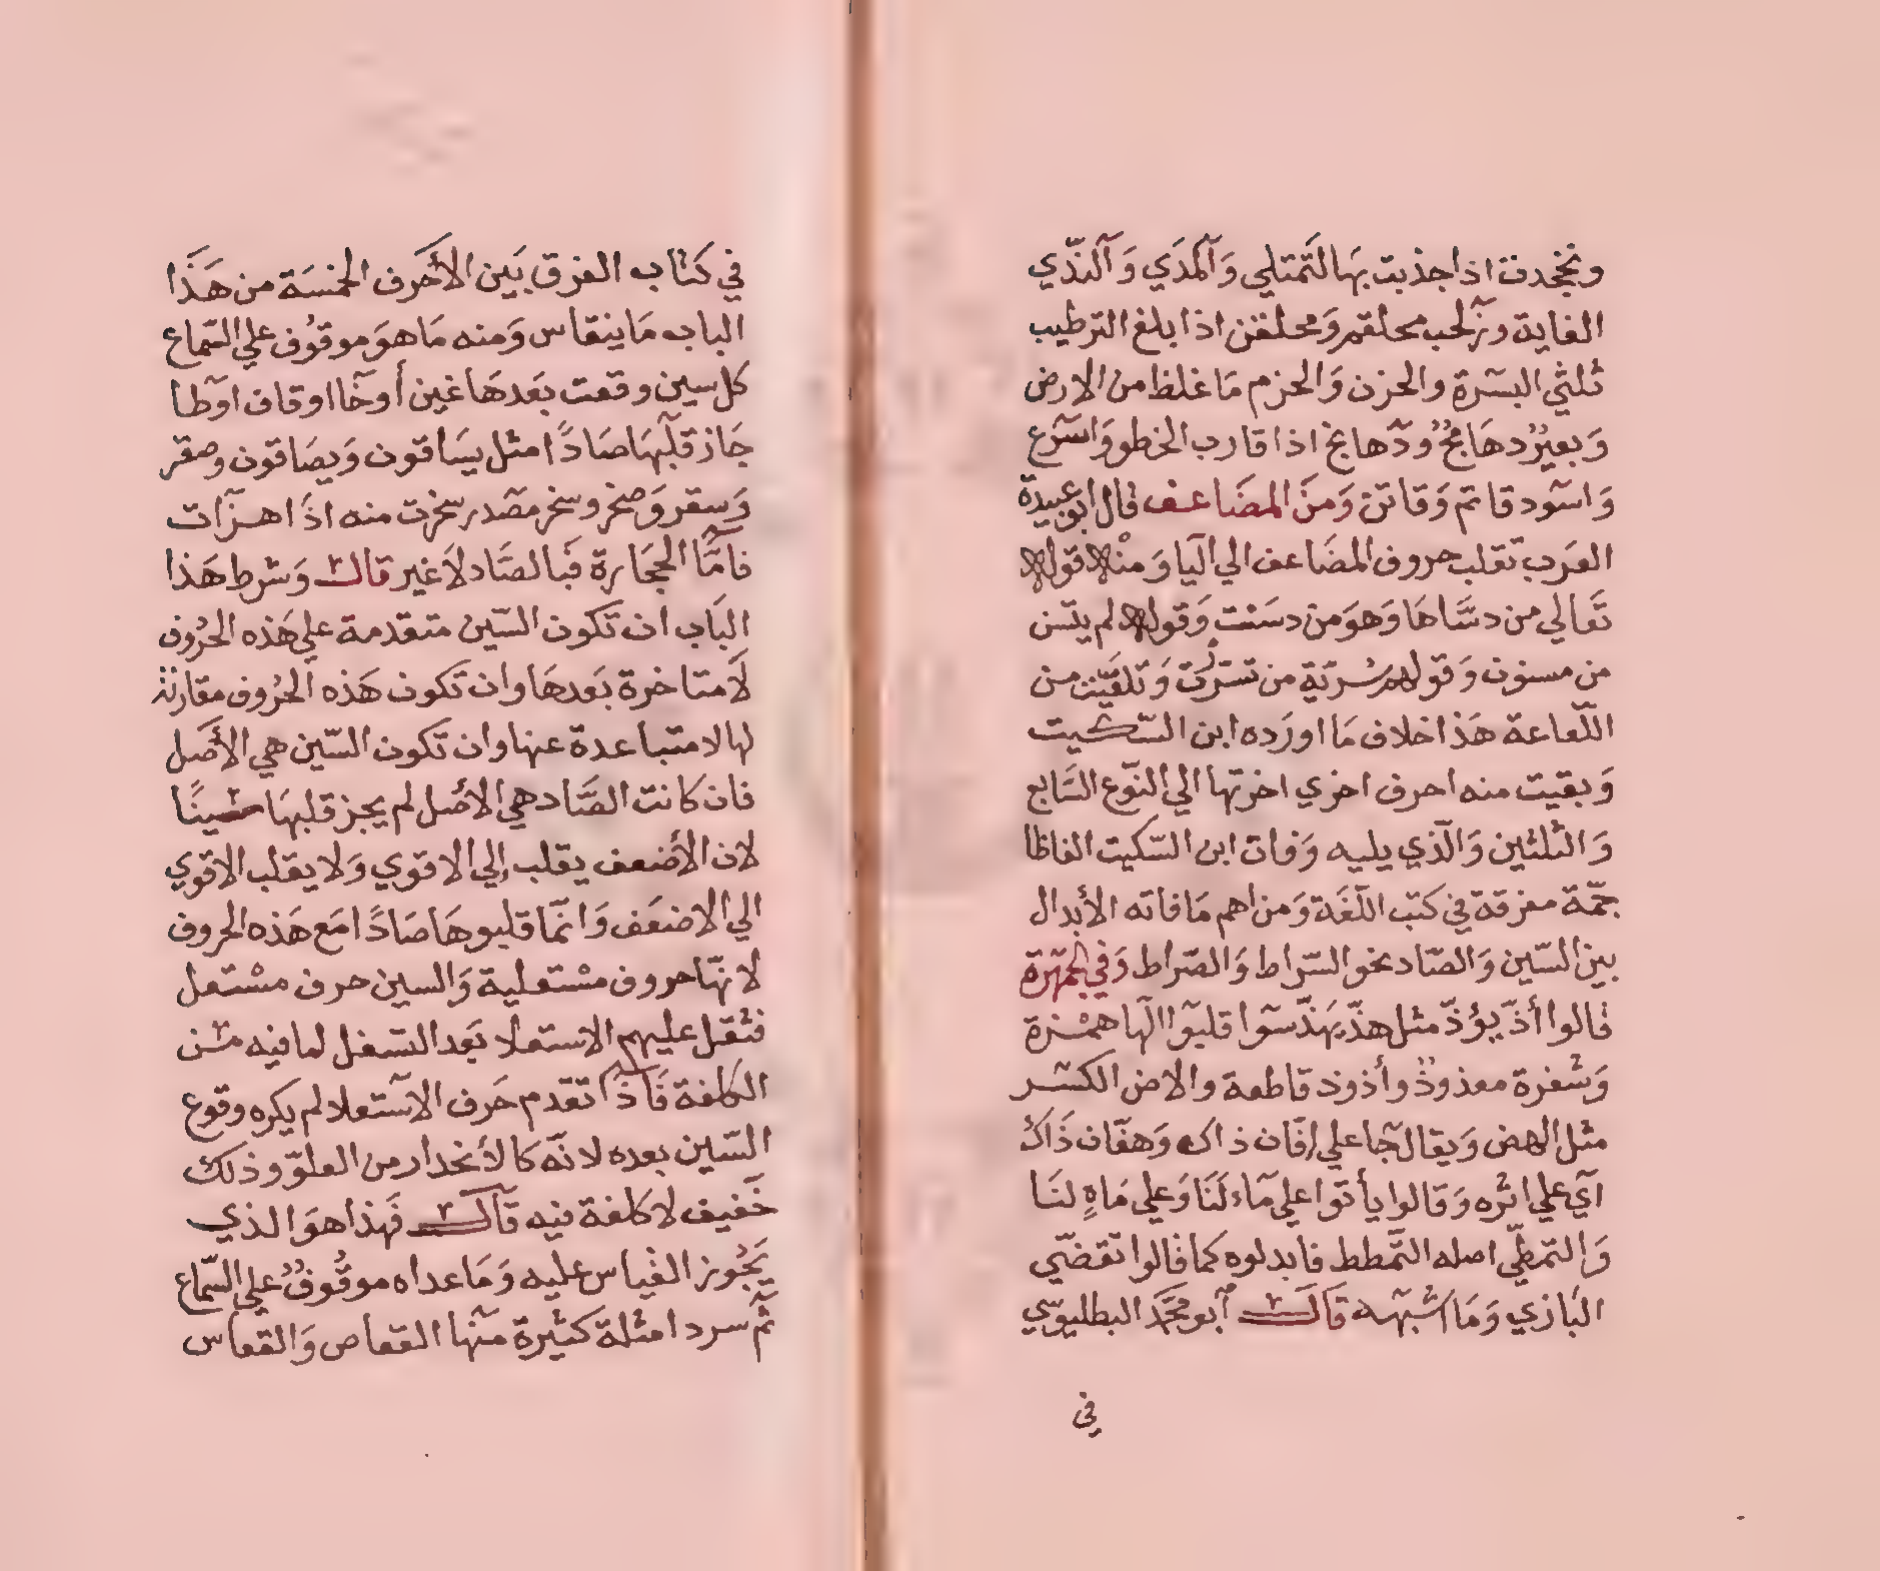 ونخجت اذا جذبت بها لتمتلي وَآلمدَي وَآلندّي
الغاية ورطب محلقم وَمحلقن اذا بلغ الترطيب
ثلثي البسرة والحزن وَالحزم مَا غلظ من الارض
وَبعير دهَامج ودهانج اذا قارب الخطو وَاسرع
وَاسود قاتم وَقاتن وَمنَ المضَاعف قال ابو عبيدة
العَرب تقلب حروف المضَاعف الي اليا وَمنه قوله
تَعَالي من دسَّاهَا وَهوَ من دسَست وَقوله لم يتسن
من مسنون وَقولهم سُرّية من تسررت وَتلعّيت من
اللّعاعة هَذا خلاف مَا اورَده ابن السّكيت
وَبقيت منه احرف اخري اخرتها الي النّوع السَّابع
وَالثلثين وَالّذي يليه وَفات ابن السّكيت الفاظا
جمّة مفرقة في كتب اللّغَة وَمن اهم مَا فاته الأبدال
بين السّين وَالصّاد نحو السّراط وَالصّراط وَفي الجمهرة
قالوا أذّ يؤذّ مثل هذّ يهَذّ سوا قلبوا الهَا همْزة
وَشفرة هذوذ وأذوذ قاطعة والاض الكسر
مثل الهض وَيقال جا علي إفّان ذاك وَهفّان ذَاك
آي علي اثره وَقالوا يأتوا علي مَاء لَنَا وَعلي مَاهٍ لنَا
وَالتمطّي اصله التّمطط فابدلوه كما قالوا تقضّي
البَازي وَمَا اشبهه قَالَ أبو محمَّد البطليوسي
في
في كتَاب الفرق بَين الأحَرف الخمسَة من هَذَا
الباب مَا ينقاس وَمنه مَا هوَ موقوُف علي السّماع
كل سين وقعت بعَدهَا غين أو خَا او قاف او طا
جَاز قلبهَا صَادًا مثل يسَاقون وَيصَاقون وصقر
وَسقر وَصخر وسخر مصَدر سخرت منه اذَا هزآت
فامَّا الحجَارة فَبالصَّاد لاَغير قال وَشرط هَذا
البَاب ان تكون السّين متقدمة علي هَذه الحرُوف
لاَ متاخرة بعَدهَا وان تكون هَذه الحرُوف مقارنة
لها لا متباعدة عنها وان تكون السّين هي الأصَل
فان كانت الصَّاد هي الأصُل لم يجز قلبهَا سينًا
لان الأضَعف يقلب إلي الاقوي وَلا يقلب الاقوي
الي الاضعَف وَانّما قلبوهَا صَادًا مَع هَذه الحروف
لانهّا حروف مسْتعلية وَالسين حرف مسْتفل
فثقل عليهم الاستعلا بعَد التسفل لما فيه من
الكلفة فَاذَا تقدم حَرف الآستعلا لم يكره وقوع
السّين بعده لانّه كالأنحدار من العلوّ وذلك
خَفيف لا كلفة فيه قَال فهَذا هوَ الذي
يَجُوز القياس عليه وَمَا عداه موقُوفٌ علي السّماع
ثمّ سرد امثلة كثيرة منها القعاص وَالقعاس